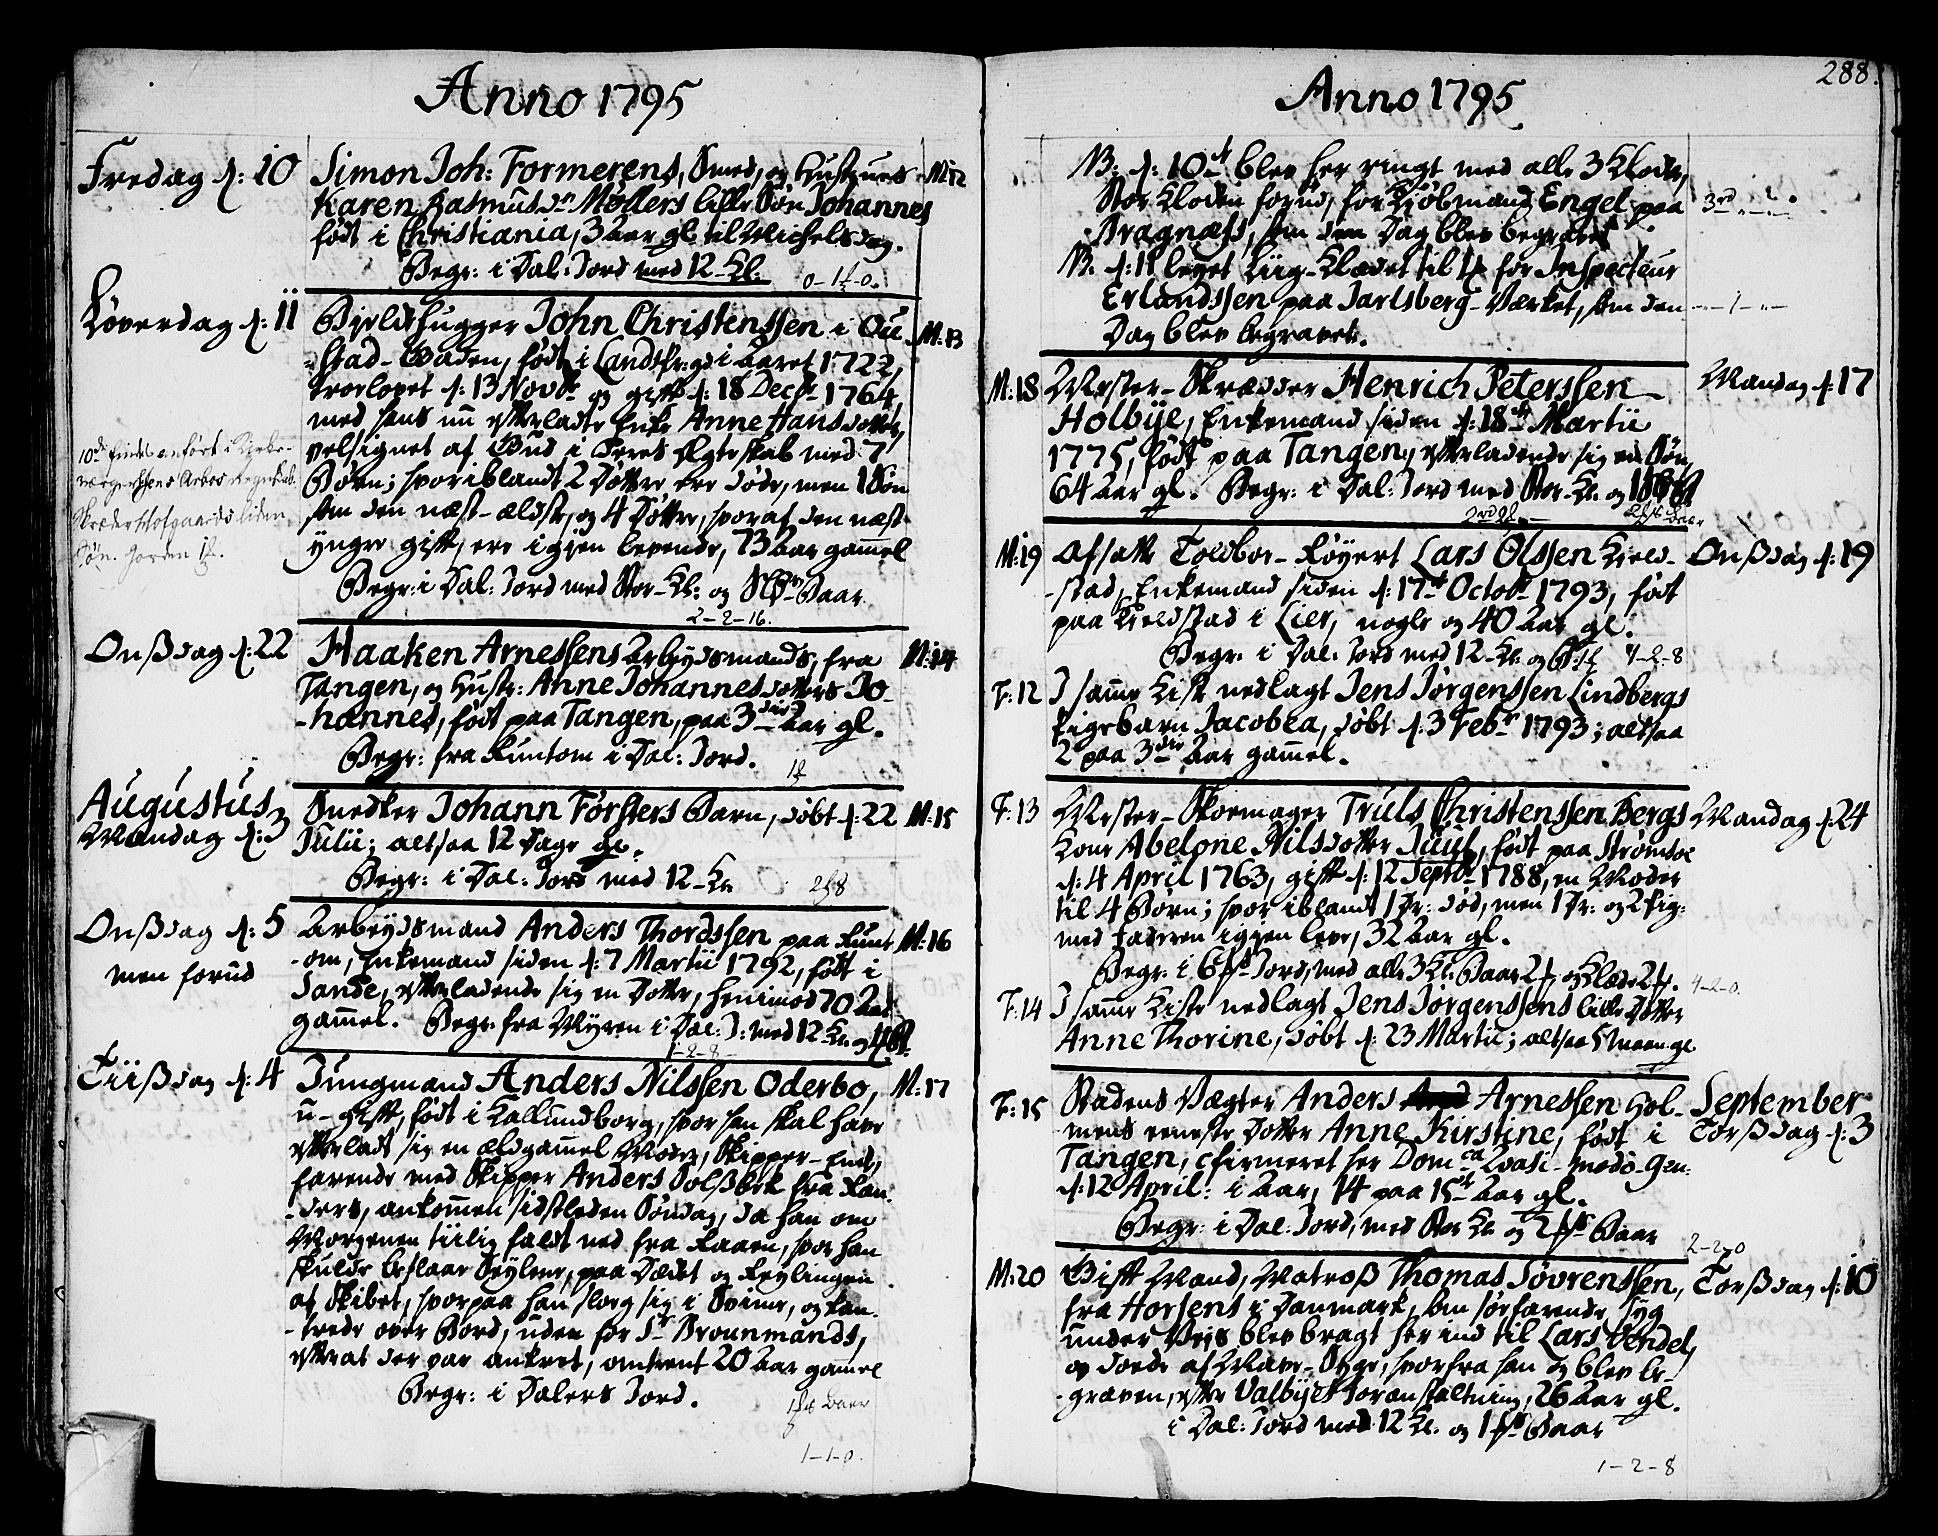 Anno 1795
Fredag d: 10
Simon Joh: Formerens, Smed, og Hustrues M:12
Karen Rasmusdr Møllers lille Søn Johannes
født i Christiania, 3 Aar gl til Michelsdag.
Begr: i Dal: Jord med 12-Kl. 0-1f-0.
Løverdag d: 11
Bjeldhugger John Christenssen i Ou- M:13
-stad-Gaden, født i Landsfr:gd i Aaret 1722,
trorlovet d: 13 Novbr og gift d: 18 Decbr 1764
med hans nu efterladte Enke Anne Hansdotter,
velsignet af Gud i deres Ægteskab med 7
Børn; hvoriblandt 2 Døttre ere døde, men 1 Søn
som den næst-ældste, og 4 Døttre, hvoraf den næst-
yngre gift, ere igjen levende, 73 Aar gammel
Begr: i Dal: Jord med Stor-Kl: og Baar
2-2-16.
10de findes anført i Kirke-
værgerssens Arbos Regnskab.
Skreder Hofgaards liden
Søn. Jorden
Onßdag d: 22
Haaken Arnessens Arbeydsmands, fra M:14
Tangen, og Hustr: Anne Johannesdotters Jo-
-hannes, født paa Tangen, paa 3die Aar gl.
Begr: fra Runtom i Dal: Jord.
Augustus
Mandag d: 3
Snedker Johann Försters Barn, døbt d: 22 M:15
Julii; altsaa 12 Dage gl.
Begr: i Dal: Jord med 12-Kl
Onßdag d: 5
men forud
Arbeydsmand Anders Thordssen paa Runt- M:16
-om, Enkemand siden d: 7 Martii 1792, født i
Sande, efterladende sig en Dotter, henimod 70 Aar
gammel. Begr. fra Myren i Dal: J: med 12 Kl. og
1-2-8
Tiißdag d: 4
Jungmand Anders Nilssen Oderbo, M:17
u-gift, født i Kallundborg, hvor han skal have
efterladt sig en ældgammel Moder, Skipper-Enke,
farende med Skipper Anders Solßbek fra Ran-
-ders, ankommen sidstleden Søndag, da han om
Morgenen tiilig faldt ned fra Raaen, hvor han
skulde beslaae Seylene, paa Dædet og Reylingen
af Skibet, hvorpaa han slog sig i Svime, og tan-
-trede over Bord, uden for Sr Brounmands,
efter at der var ankret, omtrent 20 Aar gammel
Begr: i Dalers Jord.
Baar
1-1-0.
Anno 1795
288.
NB: d: 10de blev her ringt med alle 3 Klokr,
Stor Klokken forud, for Kjøbmand Engel paa
Bragnæss, som den Dag blev begravet
NB. d: 11 leyet Liig-Klædet til for Inspecteur
Erlandssen paa Jarlsberg-Værket, som den --1-"-
Dag blev begravet.
M:18 Mester-Skrædder Henrich Peterssen Mandag d: 17
Holbye, Enkemand siden d: 18de Martii
1775, født paa Tangen, efterladende sig en Søn,
64 Aar gl. Begr: i Dal: Jord med Stor-Kl: og
M:19 Afsatte Toldbor-Røyert Lars Olssen Kield- Onßdag d: 19
-stad, Enkemand siden d: 17de Octobr 1793, født
paa Kieldstad i Lier, nogle og 40 Aar gl.
Begr. i Dal: Jord med 12-Kl. og 4-2-8
F:12 I samme Kiste nedlagt Jens Jørgenssen Lindbergs
Pigebarn Jacobea, døbt d: 3 Febr 1793; altsaa
2 paa 3die Aar gammel.
F:13 Mester-Skoemager Truls Christenssen Bergs Mandag d: 24
Kone Abelone Nilsdotter Juul, født paa Strømsøe
d: 4 April 1763, gift d: 12 Septbr 1788, en Moder
til 4 Børn; hvoriblandt 1 Dr: død, men 1 Dr: og 2 Pig:
med Faderen igjen leve, 32 Aar gl.
Begr: i Jord, med alle 3 Kl. Baar og Klæde 4-2-0.
F:14 I samme Kiste nedlagt Jens Jørgenssens lille Dotter
Anne Thorine, døbt d: 23 Martii; altsaa 5 Maan. gl
F:15 Stadens Vægter Anders Arnessen Hol- September
mens eeneste Dotter Anne Kirstine, født i Torßdag d: 3
Tangen, cfirmeret her Domca Qvasi-modo-Gen:
d: 12 April: i Aar, 14 paa 15de Aar gl.
Begr: i Dal: Jord, med Stor Kl og Baar 2-2-0
M:20 Gift Mand, Matroß Thomas Søvrenssen, Torßdag d: 10
fra Horsens i Danmark, som søefarende, syg
under Veis blev bragt her ind til Lars Vendel,
og døede af Mave-Syge, hvorfra han og blev be-
-graven, efter Valbyes Foranstaltning, 26 Aar gl.
i Dal: Jord med 12 Kl. og Baar
1-2-8